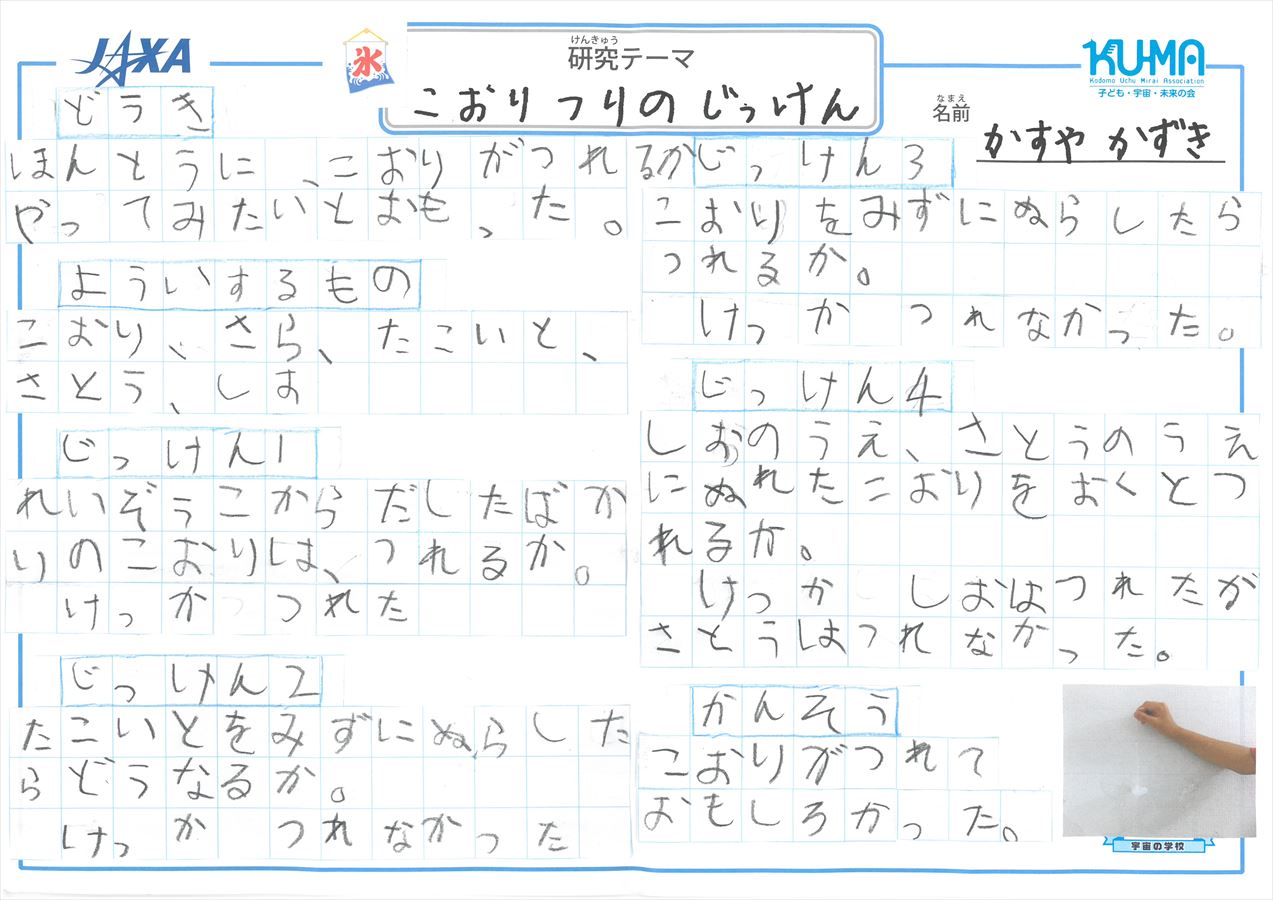 JAXA
氷
けんきゅう
研究テーマ
こおりつりのじっけん
KU-MA
Kodomo Uchu Mirai Association
子ども・宇宙・未来の会
なまえ
名前
かすや かずき
どうき
ほんとうに、こおりがつれるか
やってみたいとおもった。
よういするもの
こおり、さら、たこいと、
さとう、しお
じっけん1
れいぞうこからだしたばか
りのこおりは、つれるか。
けっか つれた
じっけん2
たこいとをみずにぬらした
らどうなるか。
けっか つれなかった
じっけん3
こおりをみずにぬらしたら
つれるか。
けっか つれなかった。
じっけん4
しおのうえ、さとうのうえ
にぬれたこおりをおくとつ
れるか。
けっか しおはつれたが
さとうはつれなかった。
かんそう
こおりがつれて
おもしろかった。
宇宙の学校